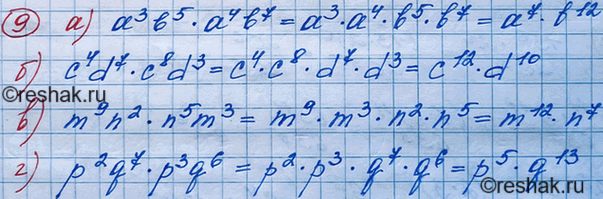 9 а) a³b⁵ · a⁴b⁷ = a³ · a⁴ · b⁵ · b⁷ = a⁷ · b¹²
©reshak.ru
б) c⁴d⁷ · c⁸d³ = c⁴ · c⁸ · d⁷ · d³ = c¹² · d¹⁰
в) m⁹n² · n⁵m³ = m⁹ · m³ · n² · n⁵ = m¹² · n⁷
г) p²q⁷ · p³q⁶ = p² · p³ · q⁷ · q⁶ = p⁵ · q¹³
©reshak.ru